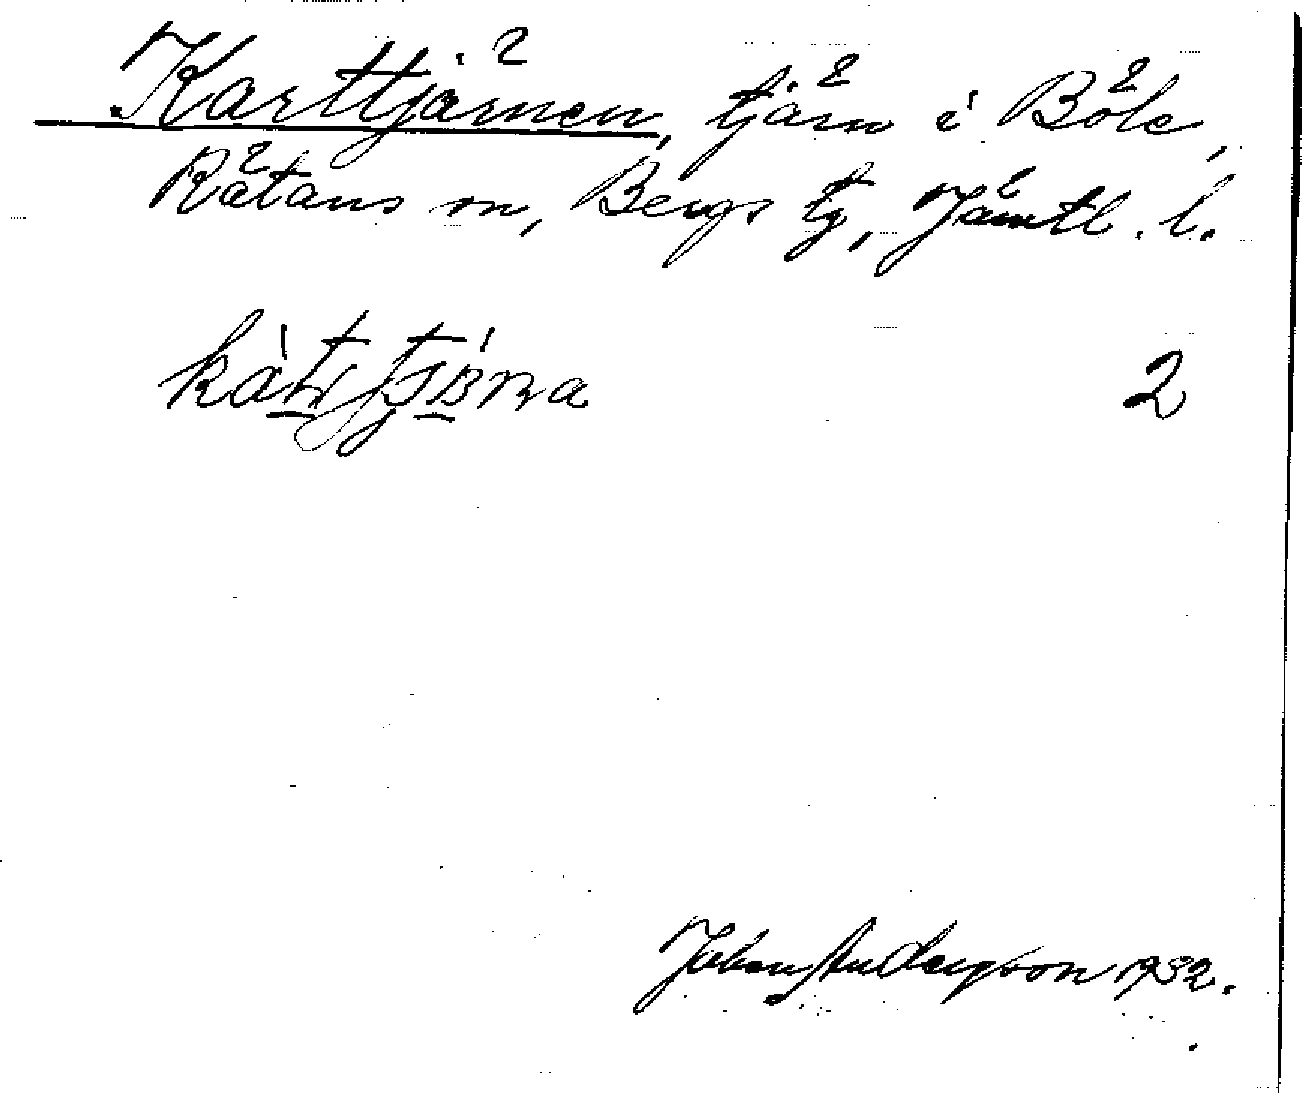 Karttjärnen, tjärn i Böle,
Rätans sn, Bergs tg, Jämtl. l.
2
Johan Andersson 1932.